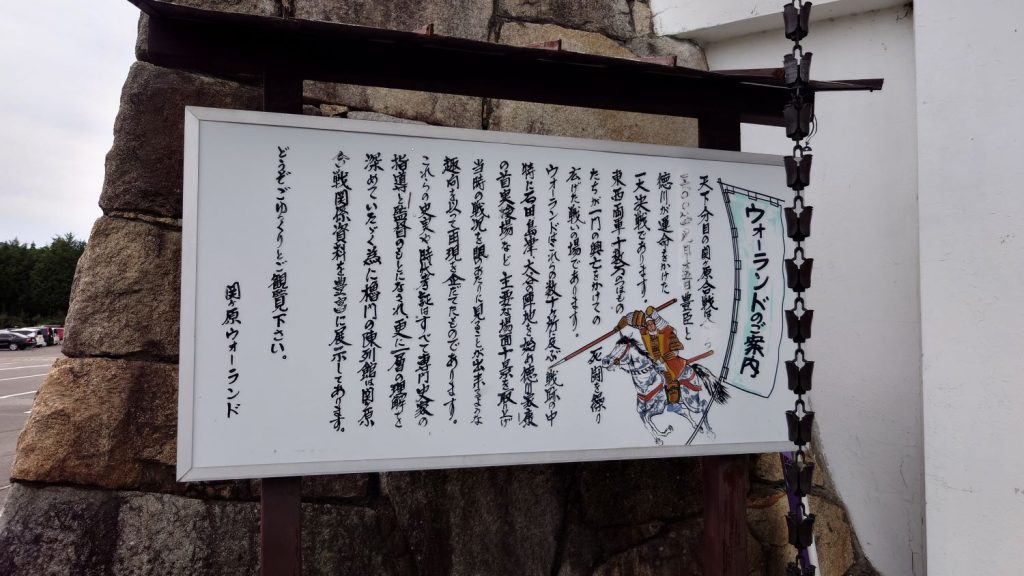 ウォーランドのご案内
天下分目の関ヶ原合戦は
月十五日豊臣と
徳川が運命をかけた
一大決戦であります。
東西両軍十数万のつわもの
たちが一門の興亡をかけての 死闘を繰り
広げた戦い場であります。
ウォーランドはこれらの数十ヶ所に及ぶ戦跡の中
特に石田島津、大谷陣地を始め徳川家康
の首実検場など主要な場面を取上げ
当時の戦況を眼あたりに見ることが出来るような
趣向を以って再現を企てたものであります。
これらの史実や時代考証はすべて専門史家の
指導と監督のもとになされ更に一層の理解を
深めていただく為に櫓門の陳列館は関ヶ原
合戦関係資料を豊富に展示してあります。
どうぞごゆっくりとご観覧下さい。
関ヶ原ウォーランド